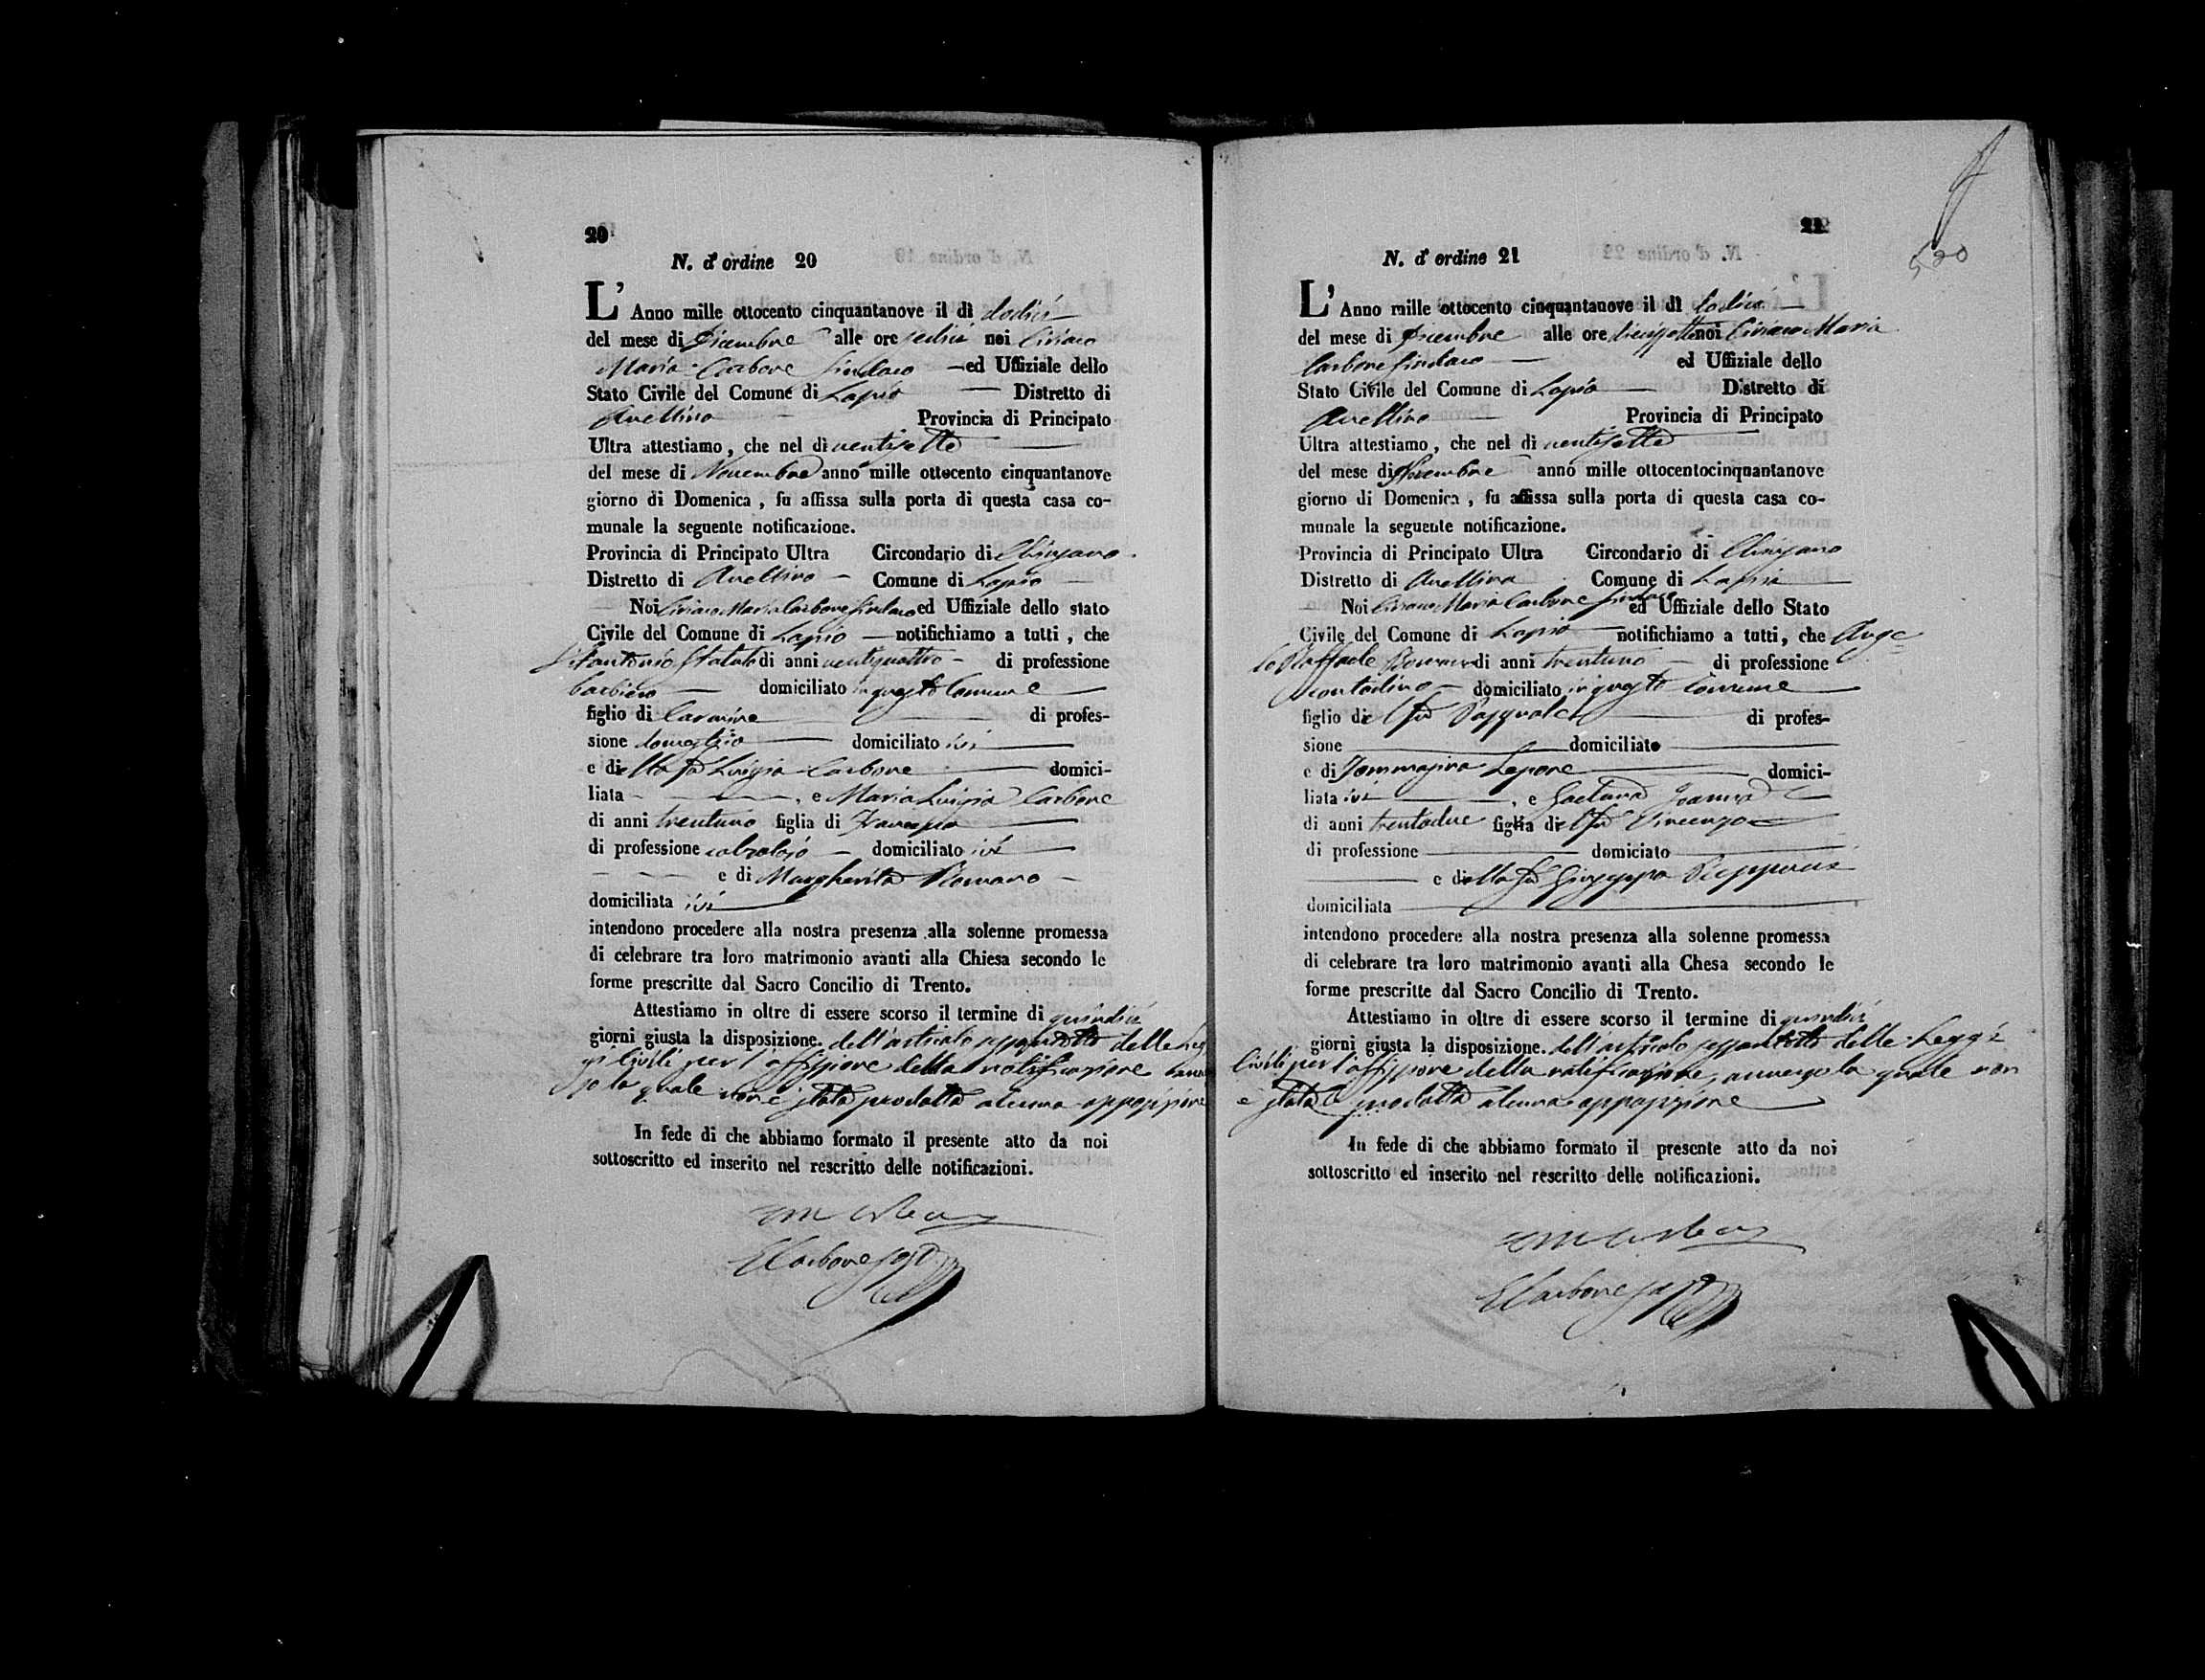 20
N. d'ordine 20
L'Anno mille ottocento cinquantanove il dì dodici
del mese di Dicembre alle ore sedici noi Ciriaco
Maria Carbone Sindaco ed Uffiziale dello
Stato Civile del Comune di Lapio Distretto di
Avellino Provincia di Principato
Ultra attestiamo, che nel dì ventisette
del mese di Novembre anno mille ottocento cinquantanove
giorno di Domenica, fu affissa sulla porta di questa casa co-
munale la seguente notificazione.
Provincia di Principato Ultra Circondario di Chiusano
Distretto di Avellino Comune di Lapio
Noi Ciriaco Maria Carbone Sindaco ed Uffiziale dello stato
Civile del Comune di Lapio notifichiamo a tutti, che
Vitantonio di anni ventiquattro di professione
barbiero domiciliato in questo Comune
figlio di Carmine di profes-
sione domestico domiciliato ivi
e della fu Luigia Carbone domici-
liata , e Maria Luigia Carbone
di anni trentuno figlia di
di professione calzolajo domiciliato ivi
e di Margherita Romano
domiciliata ivi
intendono procedere alla nostra presenza alla solenne promessa
di celebrare tra loro matrimonio avanti alla Chiesa secondo le
forme prescritte dal Sacro Concilio di Trento.
Attestiamo in oltre di essere scorso il termine di quindici
giorni giusta la disposizione. dell'articolo delle Leg
gi Civili per l'affissione della notificazione
la quale non è stata prodotta alcuna opposizione
In fede di che abbiamo formato il presente atto da noi
sottoscritto ed inserito nel rescritto delle notificazioni.
Carbone
21
520
N. d'ordine 21
L'Anno mille ottocento cinquantanove il dì dodici
del mese di Dicembre alle ore diecisette noi Ciriaco Maria
Carbone Sindaco ed Uffiziale dello
Stato Civile del Comune di Lapio Distretto di
Avellino Provincia di Principato
Ultra attestiamo, che nel dì ventisette
del mese di Dicembre anno mille ottocentocinquantanove
giorno di Domenica, fu affissa sulla porta di questa casa co-
munale la seguente notificazione.
Provincia di Principato Ultra Circondario di Chiusano
Distretto di Avellino Comune di Lapio
Noi Ciriaco Maria Carbone Sindaco ed Uffiziale dello Stato
Civile del Comune di Lapio notifichiamo a tutti, che Ange=
lo Raffaele di anni trentuno di professione
contadino domiciliato in questo Comune
figlio del fu Pasquale di profes-
sione domiciliato
e di Tommasina Lepore domici-
liata ivi , e Gaetana Joanna
di anni trentadue figlia del fu Vincenzo
di professione domiciato
e della fu Giuseppa
domiciliata
intendono procedere alla nostra presenza alla solenne promessa
di celebrare tra loro matrimonio avanti alla Chesa secondo le
forme prescritte dal Sacro Concilio di Trento.
Attestiamo in oltre di essere scorso il termine di quindici
giorni giusta la disposizione. dell'articolo delle Leggi
Civili per l'affissione della notificazione, la quale non
è stata prodotta alcuna opposizione
In fede di che abbiamo formato il presente atto da noi
sottoscritto ed inserito nel rescritto delle notificazioni.
Carbone